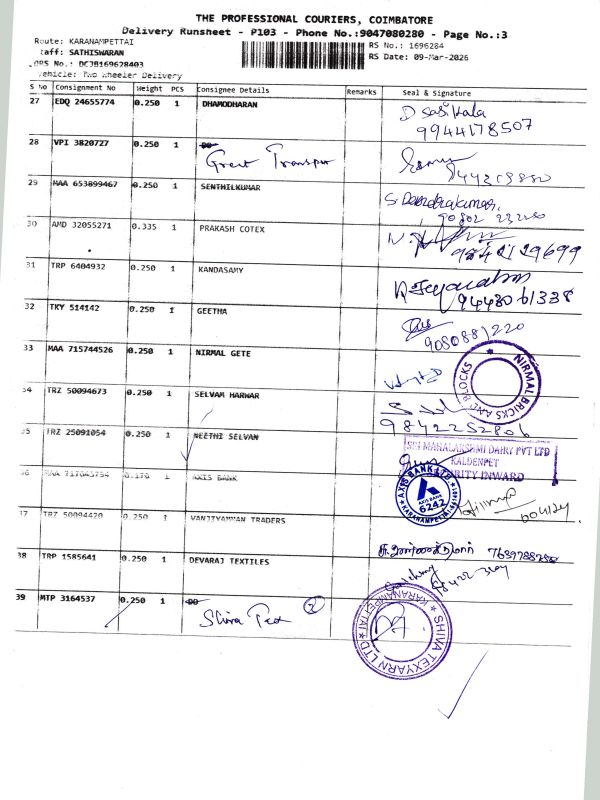 THE PROFESSIONAL COURIERS, COIMBATORE
Delivery Runsheet - P103 - Phone No.:9047080280 - Page No.:3
Route: KARANAMPETTAI
taff: SATHISWARAN
DRS No.: DCJB169628403
Vehicle: Two Wheeler Delivery
RS No.: 1696284
RS Date: 09-Mar-2026
S No Consignment No Weight PCS Consignee Details Remarks Seal & Signature
27 EDQ 24655774 0.250 1 DHAMODHARAN D Sasikala
9944178507
28 VPI 3820727 0.250 1 DO
Great Transport
29 MAA 653899467 0.250 1 SENTHILKUMAR
30 AMD 32055271 0.335 1 PRAKASH COTEX
9842129699
31 TRP 6404932 0.250 1 KANDASAMY
9443061338
32 TKY 514142 0.250 1 GEETHA
9080881220
33 MAA 715744526 0.250 1 NIRMAL GETE
NIRMAL BRICKS AND BLOCKS
34 TRZ 50094673 0.250 1 SELVAM HARWAR
9842252806
35 TRZ 25091054 0.250 1 NEETHI SELVAN
SRI MAHALAKSHMI DAIRY PVT LTD
KALDENPET
SECURITY INWARD
36 MAA 717043754 0.170 1 AXIS BANK
AXIS BANK LTD
AXIS BANK
6242
37 TRZ 50094420 0.250 1 VANJIYAMMAN TRADERS
38 TRP 1585641 0.250 1 DEVARAJ TEXTILES
39 MTP 3164537 0.250 1 DO
Shiva Tex 2
SHIVA TEXYARN LTD
KARANAMPETTAI